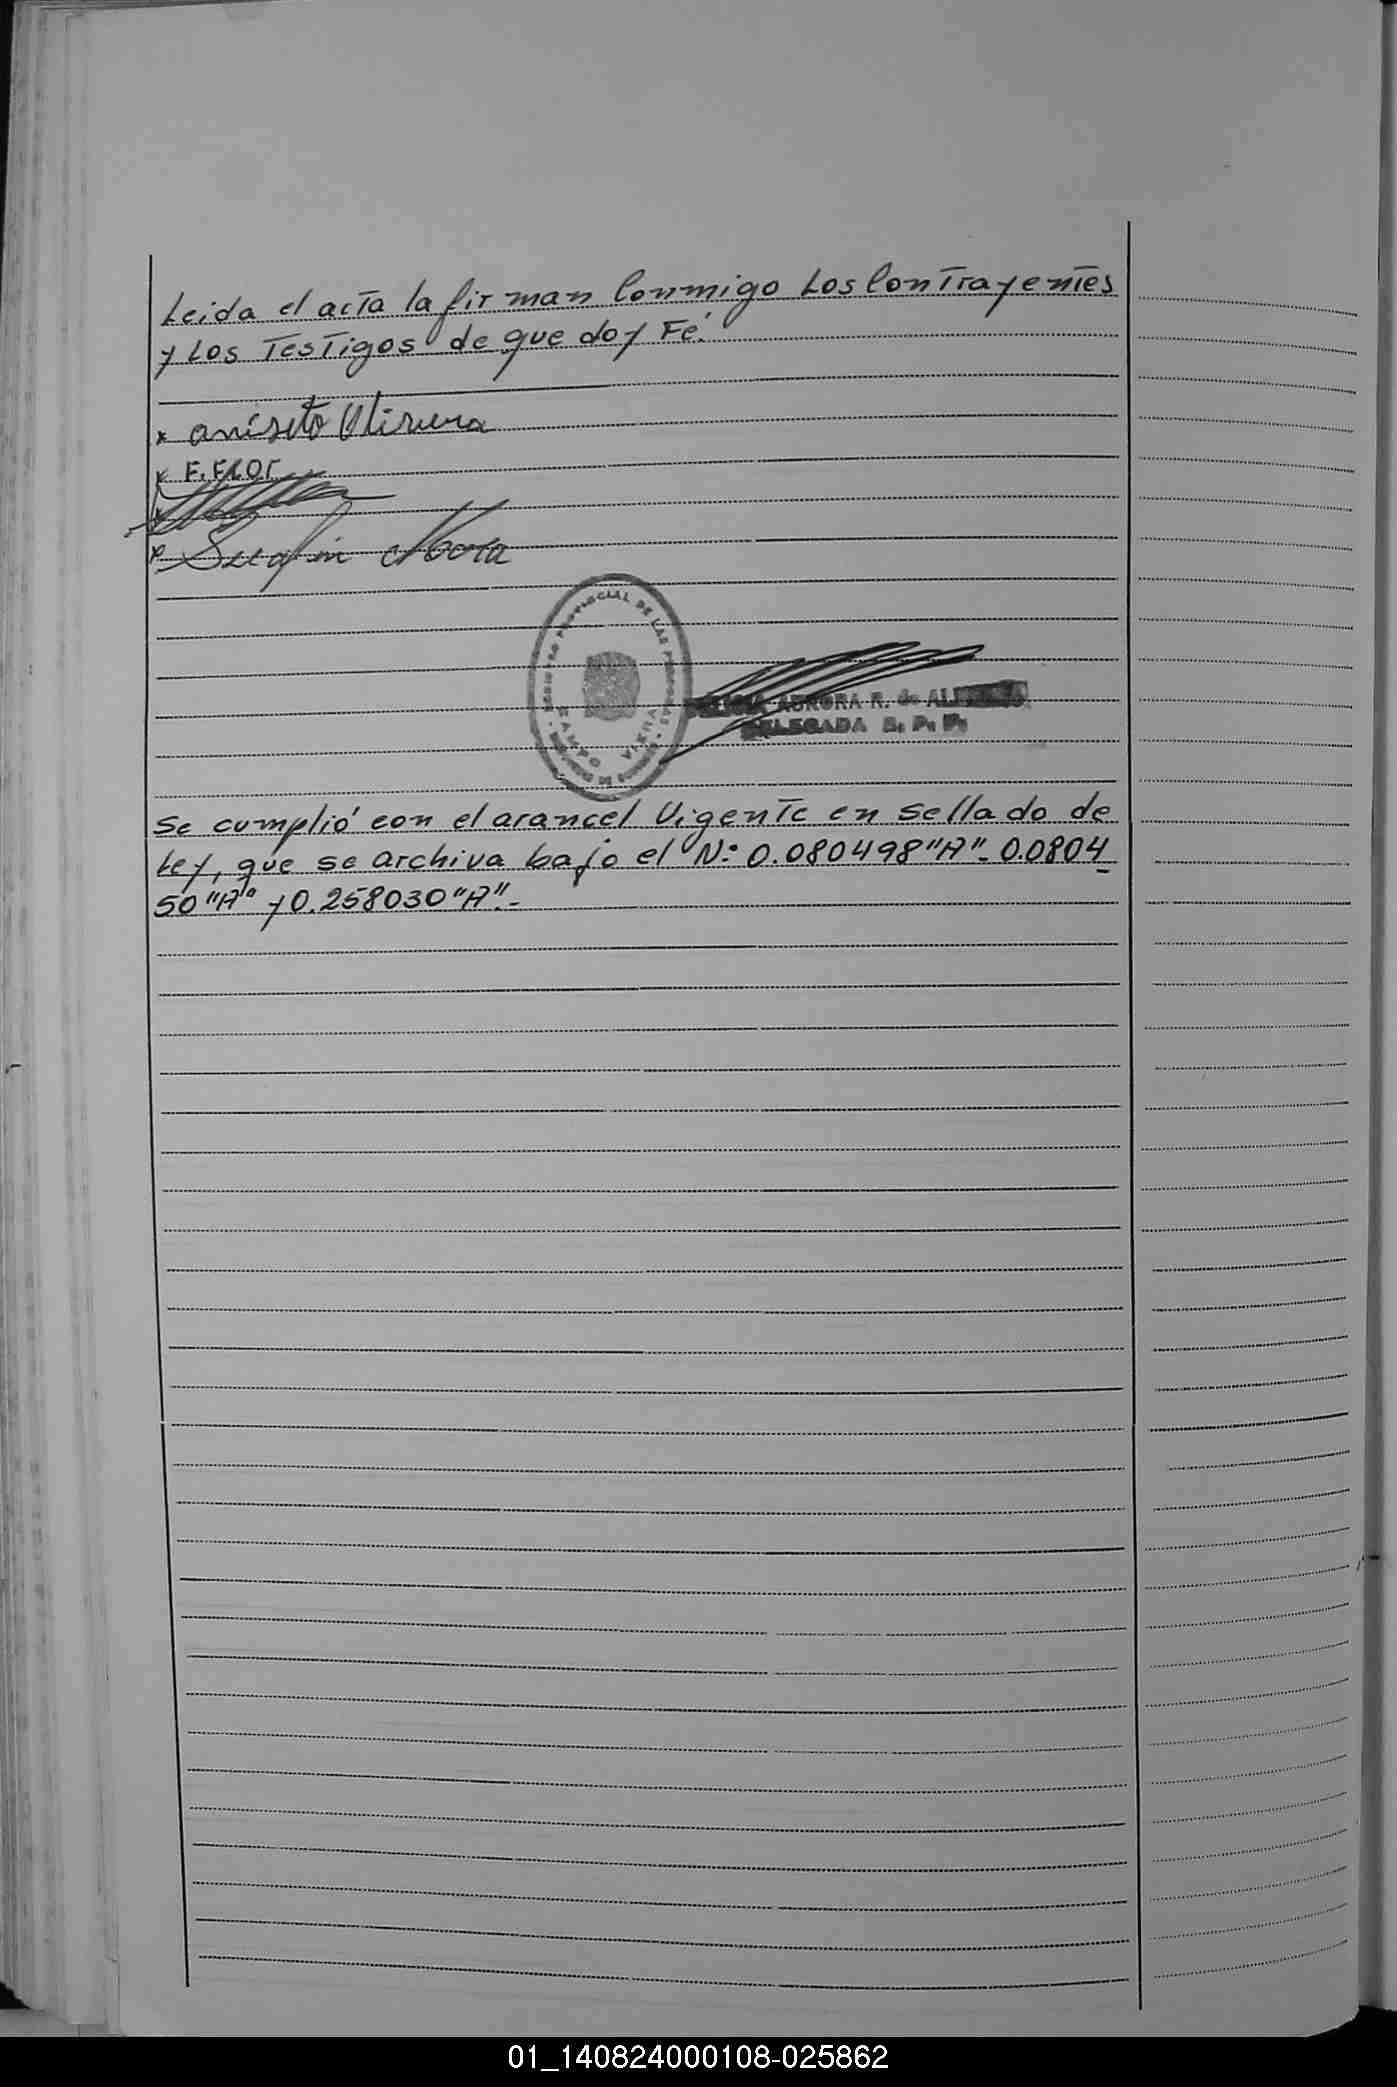 Leida el acta la firman Conmigo Los Contrayentes
y Los Testigos de que doy Fé.
x aniseto Olivera
x F. FLOr
x
x Serafin Mora
REGISTRO PROVINCIAL DE LAS PERSONAS
CAMPO VIERA
AURORA R. de
DELEGADA R. P. P.
Se cumplió con el arancel Vigente en sellado de
Ley, que se archiva bajo el N: 0.080498 "A" - 0.0804
50 "A" y 0.258030 "A".-
01_140824000108-025862